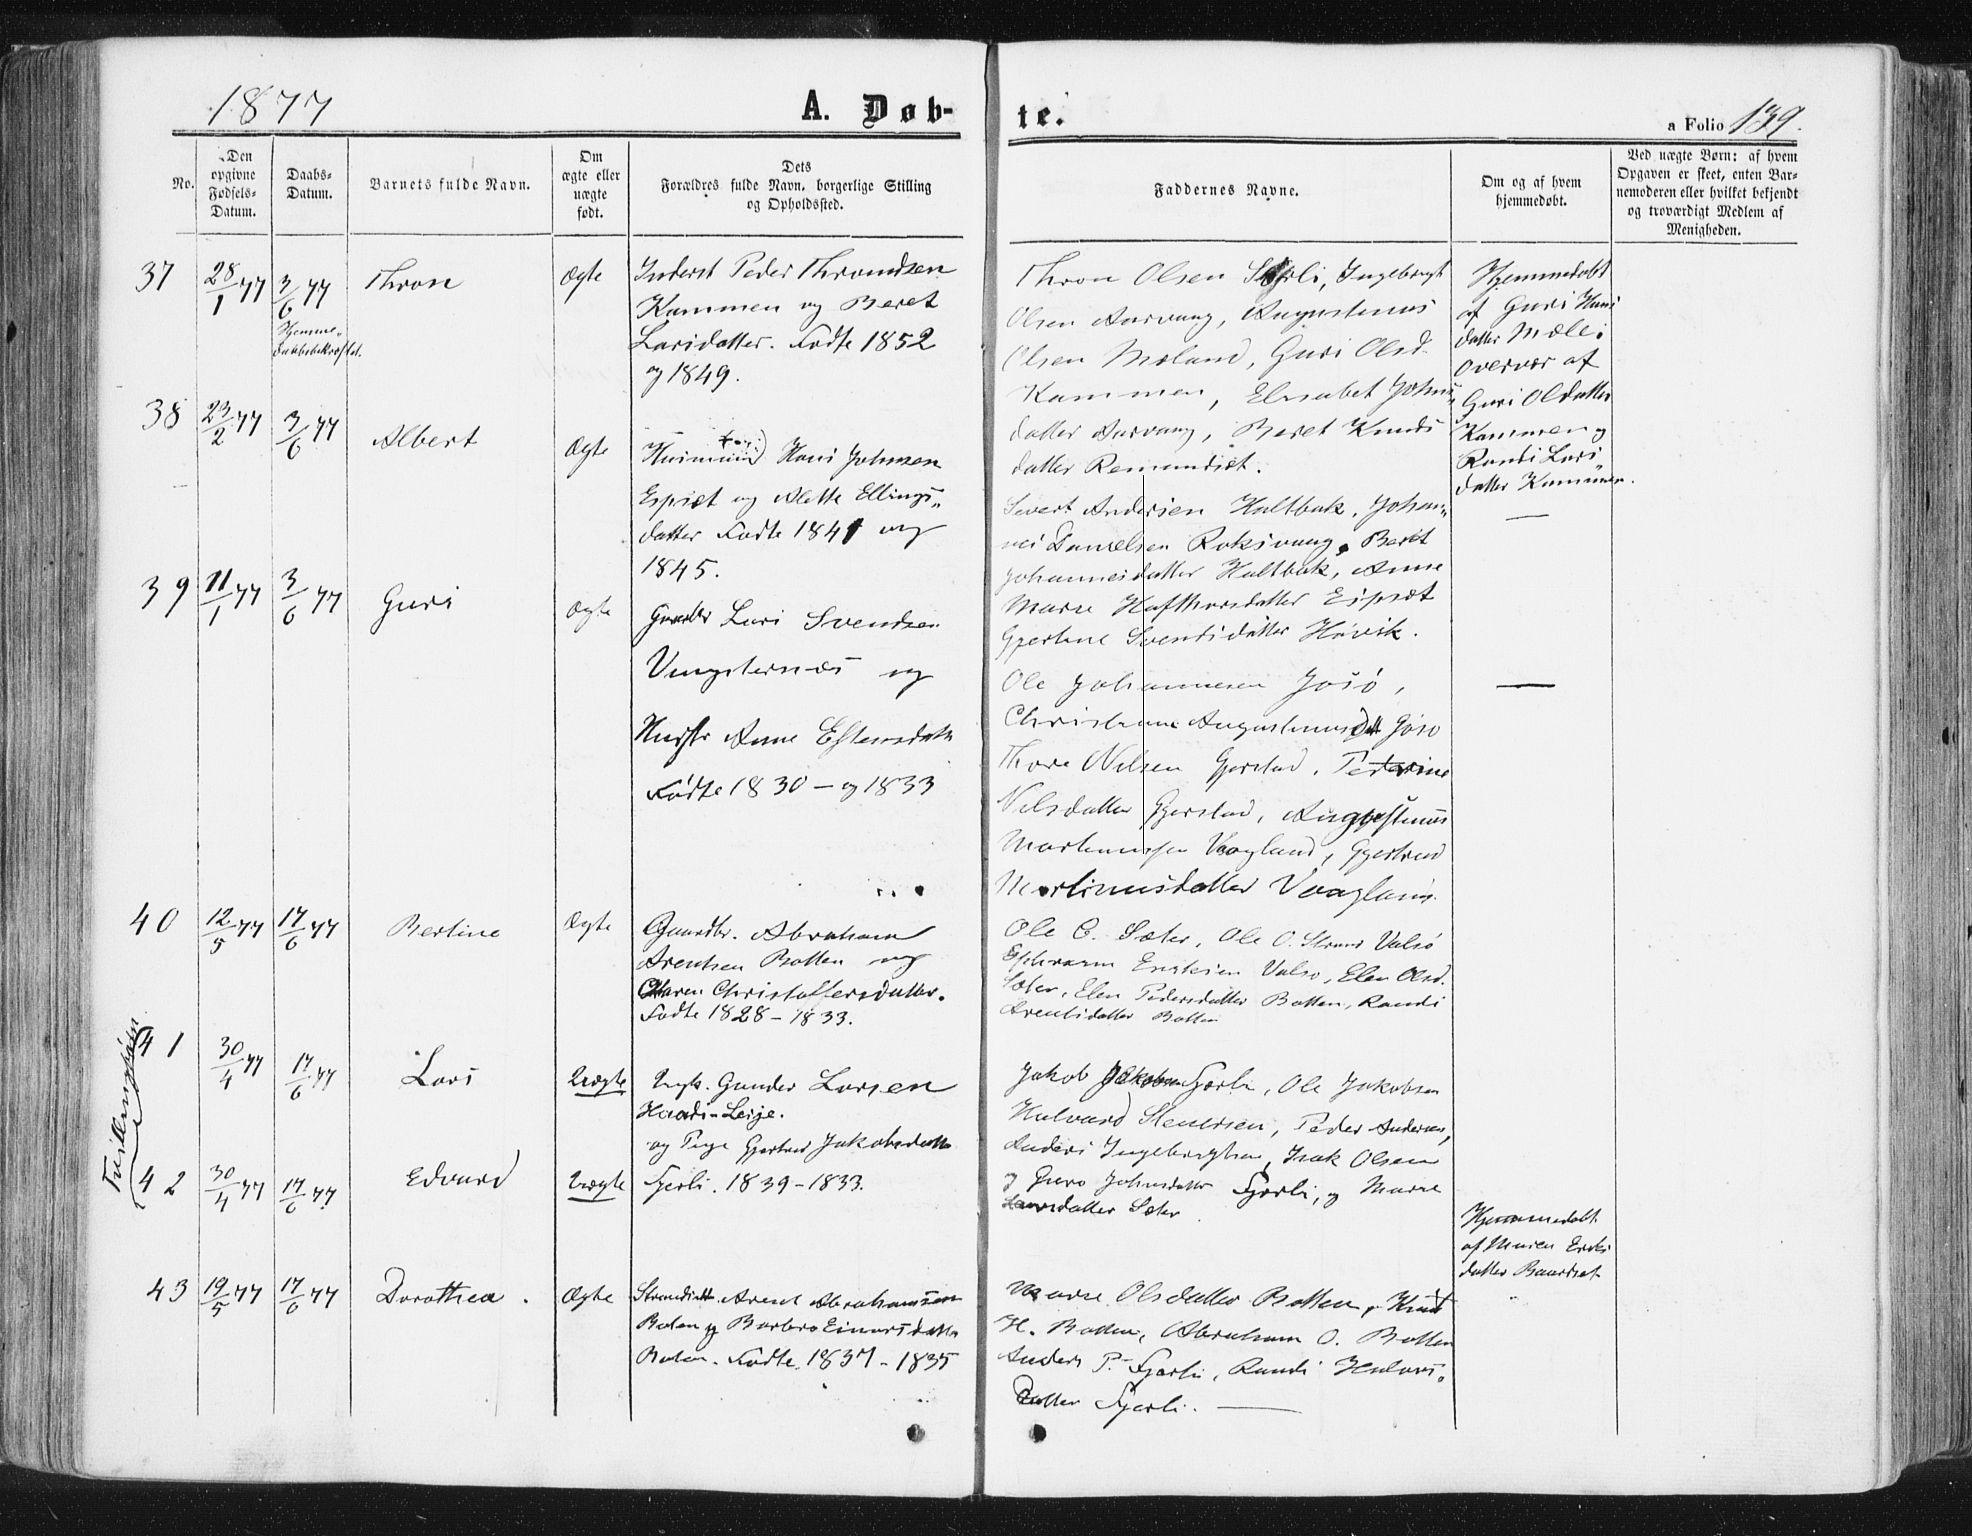 1877
A. Døb-
te.
a Folio 139.
No.
Den
opgivne
Fødsels-
Datum.
Daabs-
Datum.
Barnets fulde Navn.
Om
ægte eller
uægte
født.
Dets
Forældres fulde Navn, borgerlige Stilling
og Opholdssted.
Faddernes Navne.
Om og af hvem
hjemmedøbt.
Ved uægte Børn: af hvem
Opgaven er skeet, enten Bar-
nemoderen eller hvilket bekjendt
og troværdigt Medlem af
Menigheden.
37
28/1 77
3/6 77
Thron
Ægte
Inderst Peder Throndsen
Kammen og Beret
Larsdatter. Fødte 1852
og 1849.
Thron Olsen Ingebrigt
Olsen Aarvaag, Augustinus
Olsen Moland, Guri Olsd.
Kammen, Elisabet Johns
datter Aarvaag, Beret Knuds
datter Remundset.
Hjemmedøbt
af Guri Hans
datter Mæle i
Overvær af
Guri Olsdatter
Kammen og
Randi Lars
datter Kammen.
38
23/2 77
3/6 77
Albert
Ægte
Husmand Hans Johnsen
Espset og Alette Ellings
datter Fødte 1841 og
1845.
Sivert Andersen Holtbak, Johan
nes Danielsen Roksvaag, Beret
Johannesdatter Holtbak, Anne
Marie Hafthorsdatter Espset
Gjertine Svendsdatter Høvik.
—
39
11/1 77
3/6 77
Guri
Ægte
Gaardbr Lars Svendsen
Vingsternæs og
Hustr Anne Estensdatt
Fødte 1830 — og 1833
Ole Johannesen Josø,
Christiane Augustinusdtt Josø
Thore Nilsen Gjerstad, Petrine
Nilsdatter Gjerstad, Augustinus
Martinussen Vaagland, Gjertrud
Martinusdatter Vaagland.
—
40
12/5 77
17/6 77
Bertine
Ægte
Gaardbr. Abraham
Arentsen Botten og
Maren Christoffersdatter.
Fødte 1828 - 1833.
Ole C. Sæter, Ole O. Strand Valsø
Ephraim Eriksen Valsø, Elen Olsd.
Sæter, Elen Pedersdatter Botten, Randi
Arentsdatter Botten
Tvillingbørn
41
30/4 77
17/6 77
Lars
Uægte
Ungk. Gunder Larsen
og Pige Gjertrud Jakobsdatter
Fjerli. 1839 - 1833.
Jakob Jakobsen Fjærli, Ole Jakobsen
Halvard Stenersen, Peder Andersen,
Anders Ingebrigtsen, Isak Olsen
og Guro Johnsdatter Fjerli, og Marie
Larsdatter Sæter
42
30/4 77
17/6 77
Edvard
Uægte
43
19/5 77
17/6 77
Dorothea.
Ægte
Strandsidd. Arent Abrahamsen
Boten og Barbro Einarsdatter
Boten. Fødte 1837 - 1835
Marie Olsdatter Botten, Knut
H. Botten, Abraham O. Botten
Anders P. Fjerli, Randi Halvors
datter Fjerli. —
Hjemmedøbt
af Maren Eriks
datter Baardset